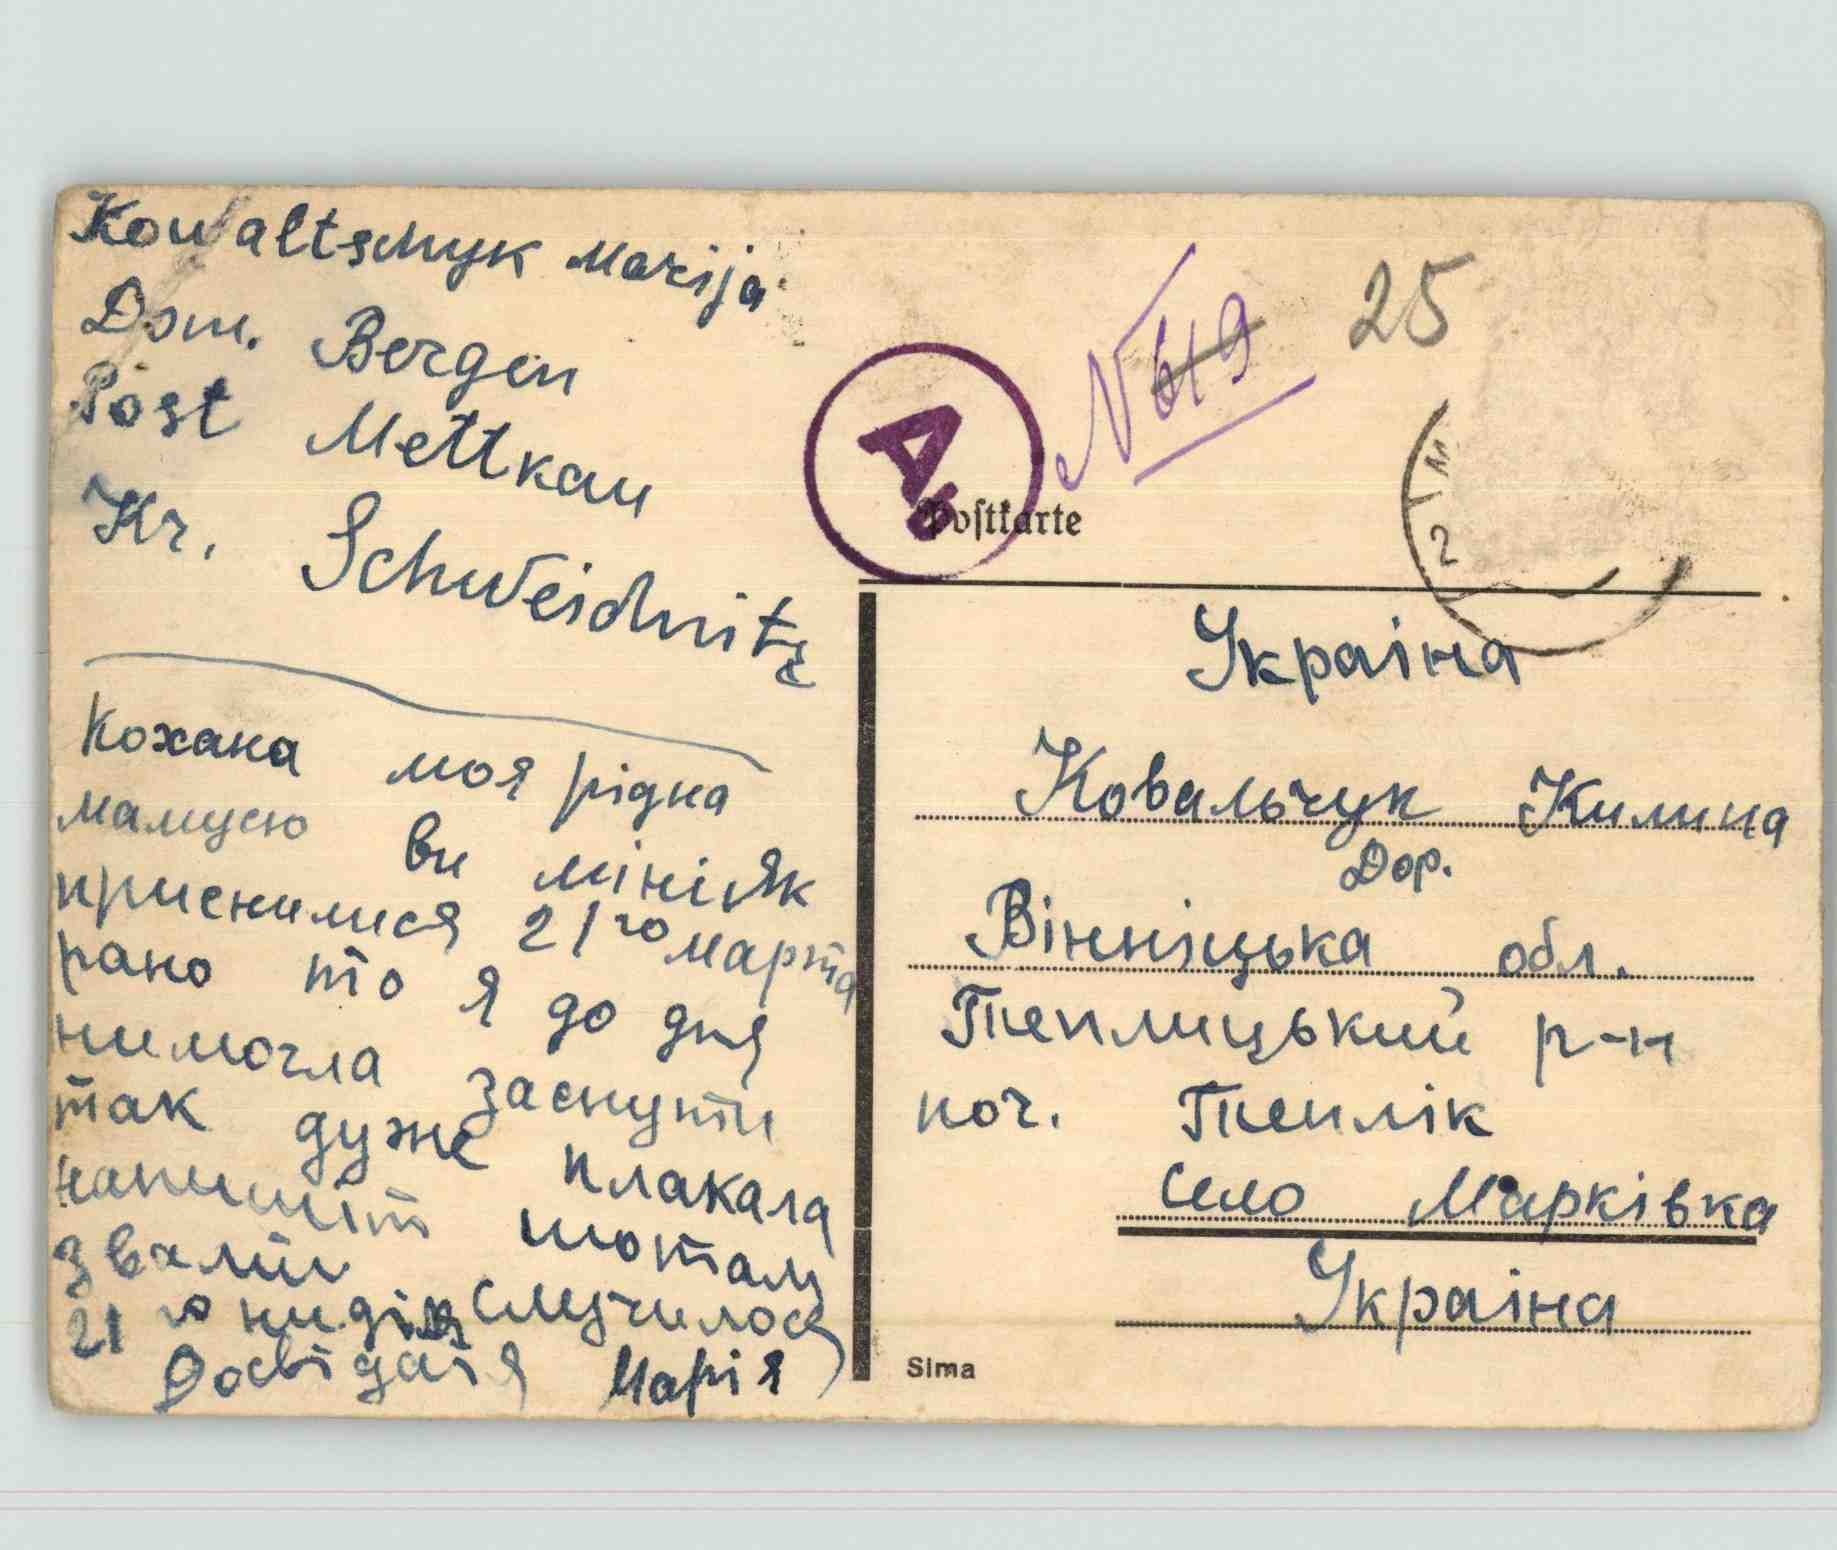 Kowaltschyk Marija
Dom. Bergen
Post Mettkau
Kr. Schweidnitz
Кохана моя рідна
мамусю ви міні як
приснилися 21го марта
рано то я до дня
нимогла заснути
так дуже плакала
напишіт шотам
звами
21 го ниділі случилося
Досвіданя Марія
№ 649
25
A
Postkarte
Україна
Ковальчук Килина
Дор.
Вінніцька обл.
Теплицький р-н
поч. Теплік
село Марківка
Україна
Sima